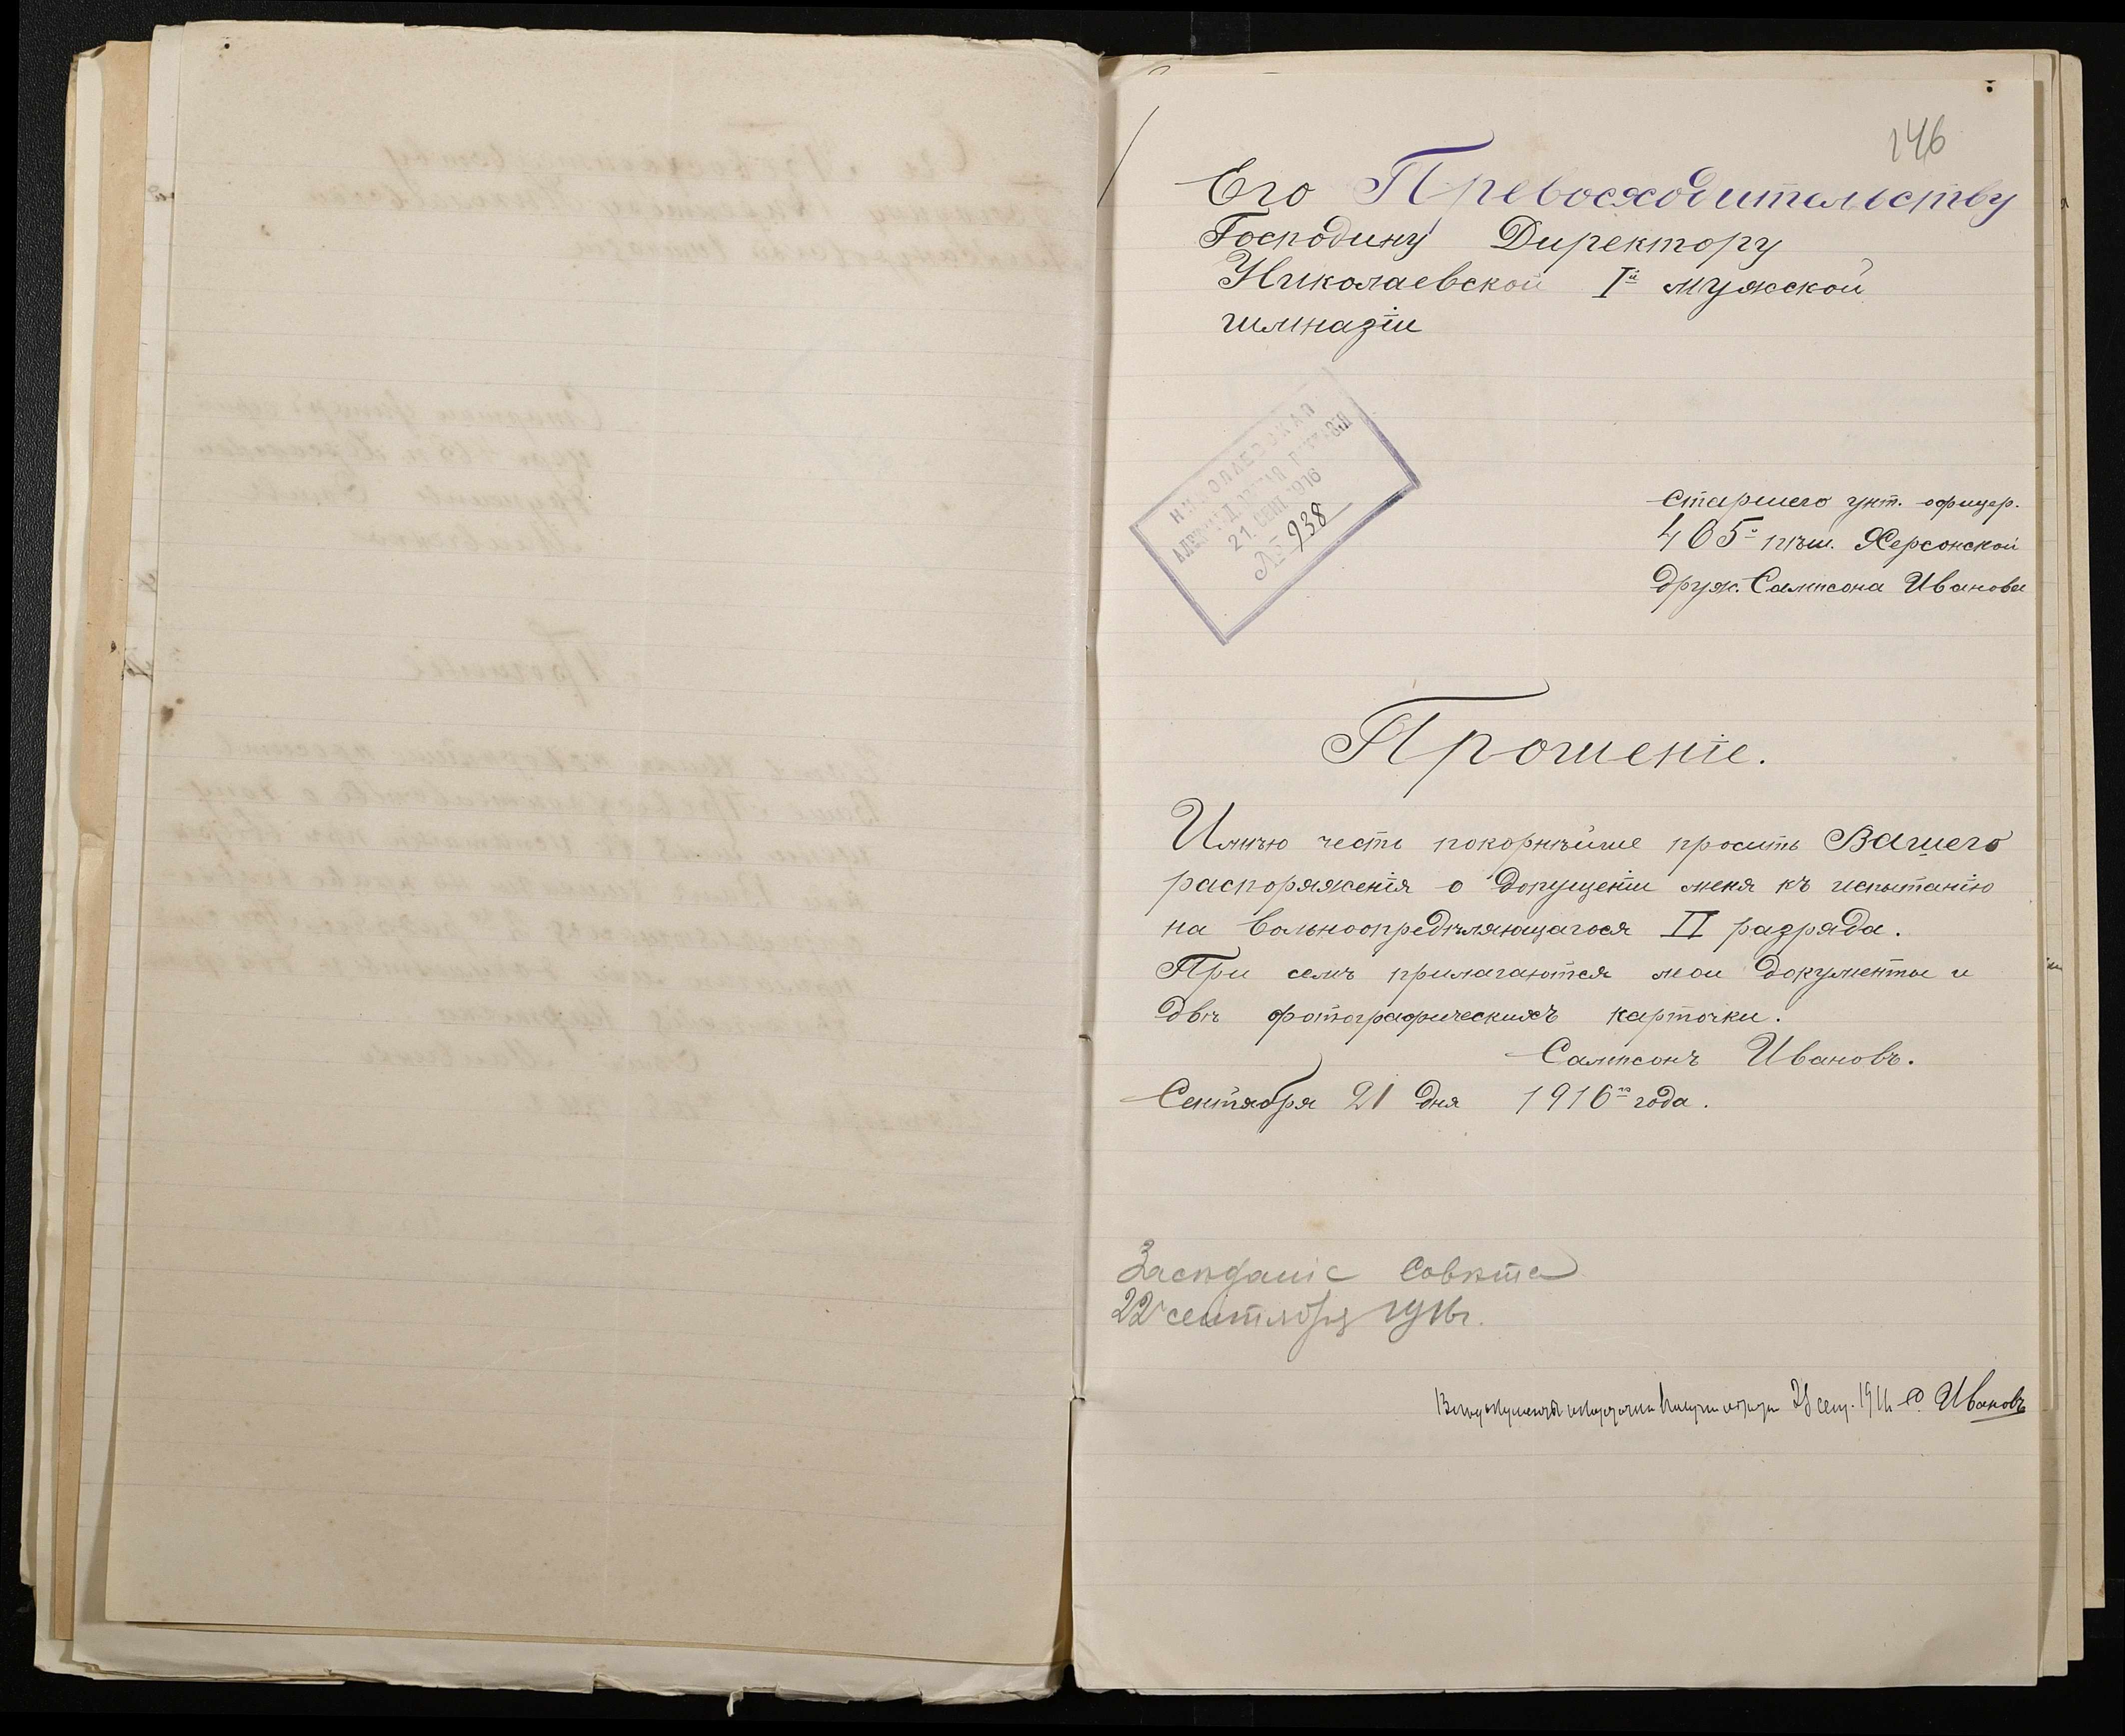 146
Его Превосходительству
Господину Директору
Николаевской Iй мужской
гимназіи
НИКОЛАЕВСКАЯ
АЛЕКСАНДРОВСКАЯ ГИМНАЗІЯ
21. СЕНТ. 1916
№ 938
Старшего унт. офицер.
465й пѣш. Херсонской
друж. Сампсона Иванова
Прошеніе.
Имѣю честь покорнѣйше просить Вашего
распоряженія о допущеніи меня къ испытанію
на вольноопредѣляющагося II разряда.
При семъ прилагаются мои документы и
двѣ фотографическихъ карточки.
Сампсонъ Ивановъ.
Сентября 21 дня 1916го года.
Засѣданіе Совѣта
22 сентября 1916г.
Всѣ документы карточки получилъ обратно 28 сент. 1916 С. Ивановъ